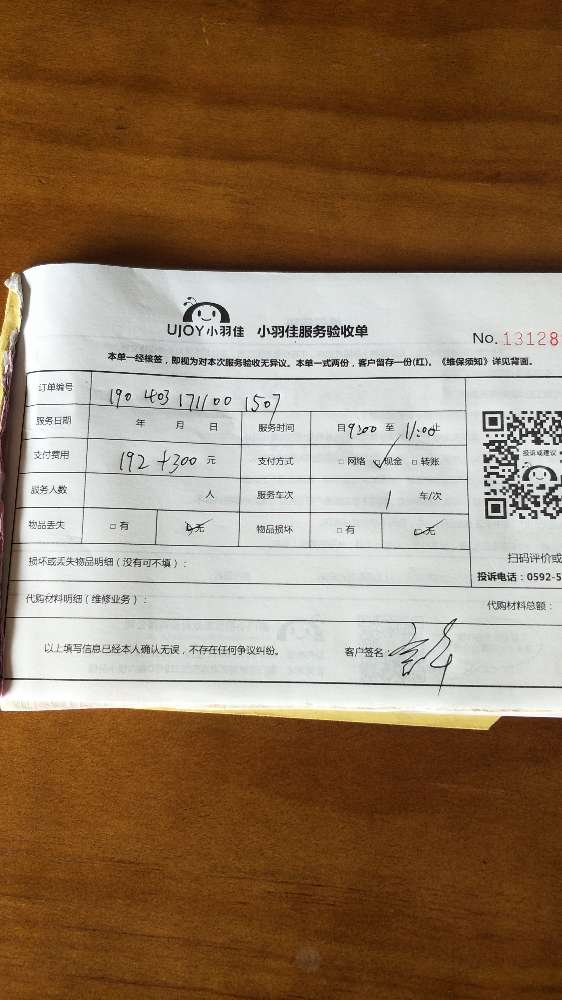 UJOY小羽佳 小羽佳服务验收单
No. 13128
本单一经核签，即视为对本次服务验收无异议。本单一式两份，客户留存一份(红)。《维保须知》详见背面。
订单编号 190 403 171100 1507
服务日期 年 月 日 服务时间 自 9:00 至 11:00止
支付费用 192+300 元 支付方式 □网络 ☑现金 □转账
服务人数 人 服务车次 1 车/次
物品丢失 □有 ☑无 物品损坏 □有 ☑无
投诉或建议
损坏或丢失物品明细（没有可不填）：
扫码评价或
投诉电话：0592-5
代购材料明细（维修业务）：
代购材料总额：
以上填写信息已经本人确认无误，不存在任何争议纠纷。 客户签名：